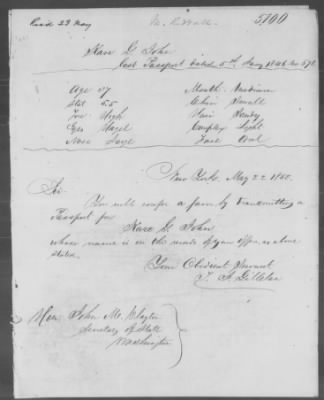 Recd 23 May
5100
Kare G John
Last Passport dated 5th Jany 1846 No
Age 37
Mouth Medium
Stat 5.5
Chin Small
For High
Hair Sandy
Eyes Hazel
Complex Light
Nose Large
Face Oval
New York May 22 1850.
Sir
You will confer a favor by transmitting a
Passport for
Kare G John
whose name is on the records of your office as above
stated.
Your Obedient Servant
Hon John M. Clayton
Secretary of State
Washington